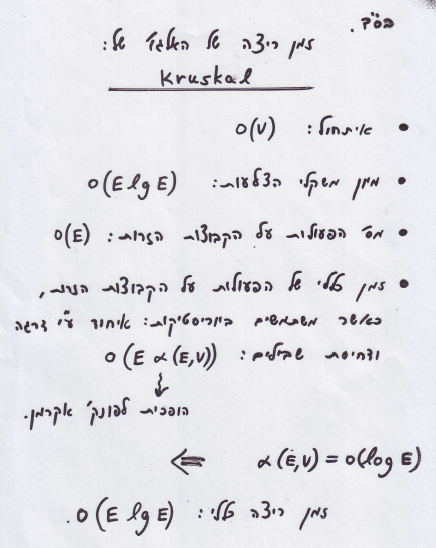 בס"ד.
זמן ריצה של האלג' של:
Kruskal
• איתחול: O(V)
• מיון משקלי הצלעות: O(E lg E)
• מס' הפעולות על הקבוצות הזרות: O(E)
• זמן כללי של הפעולות על הקבוצות הזרות,
כאשר משתמשים ביוריסטיקות: איחוד ע"י דרגה
ודחיסת שבילים: O(E α(E,V))
הופכית לפונק' אקרמן.
α(E,V) = O(log E) ⇐
זמן ריצה כללי: O(E lg E).